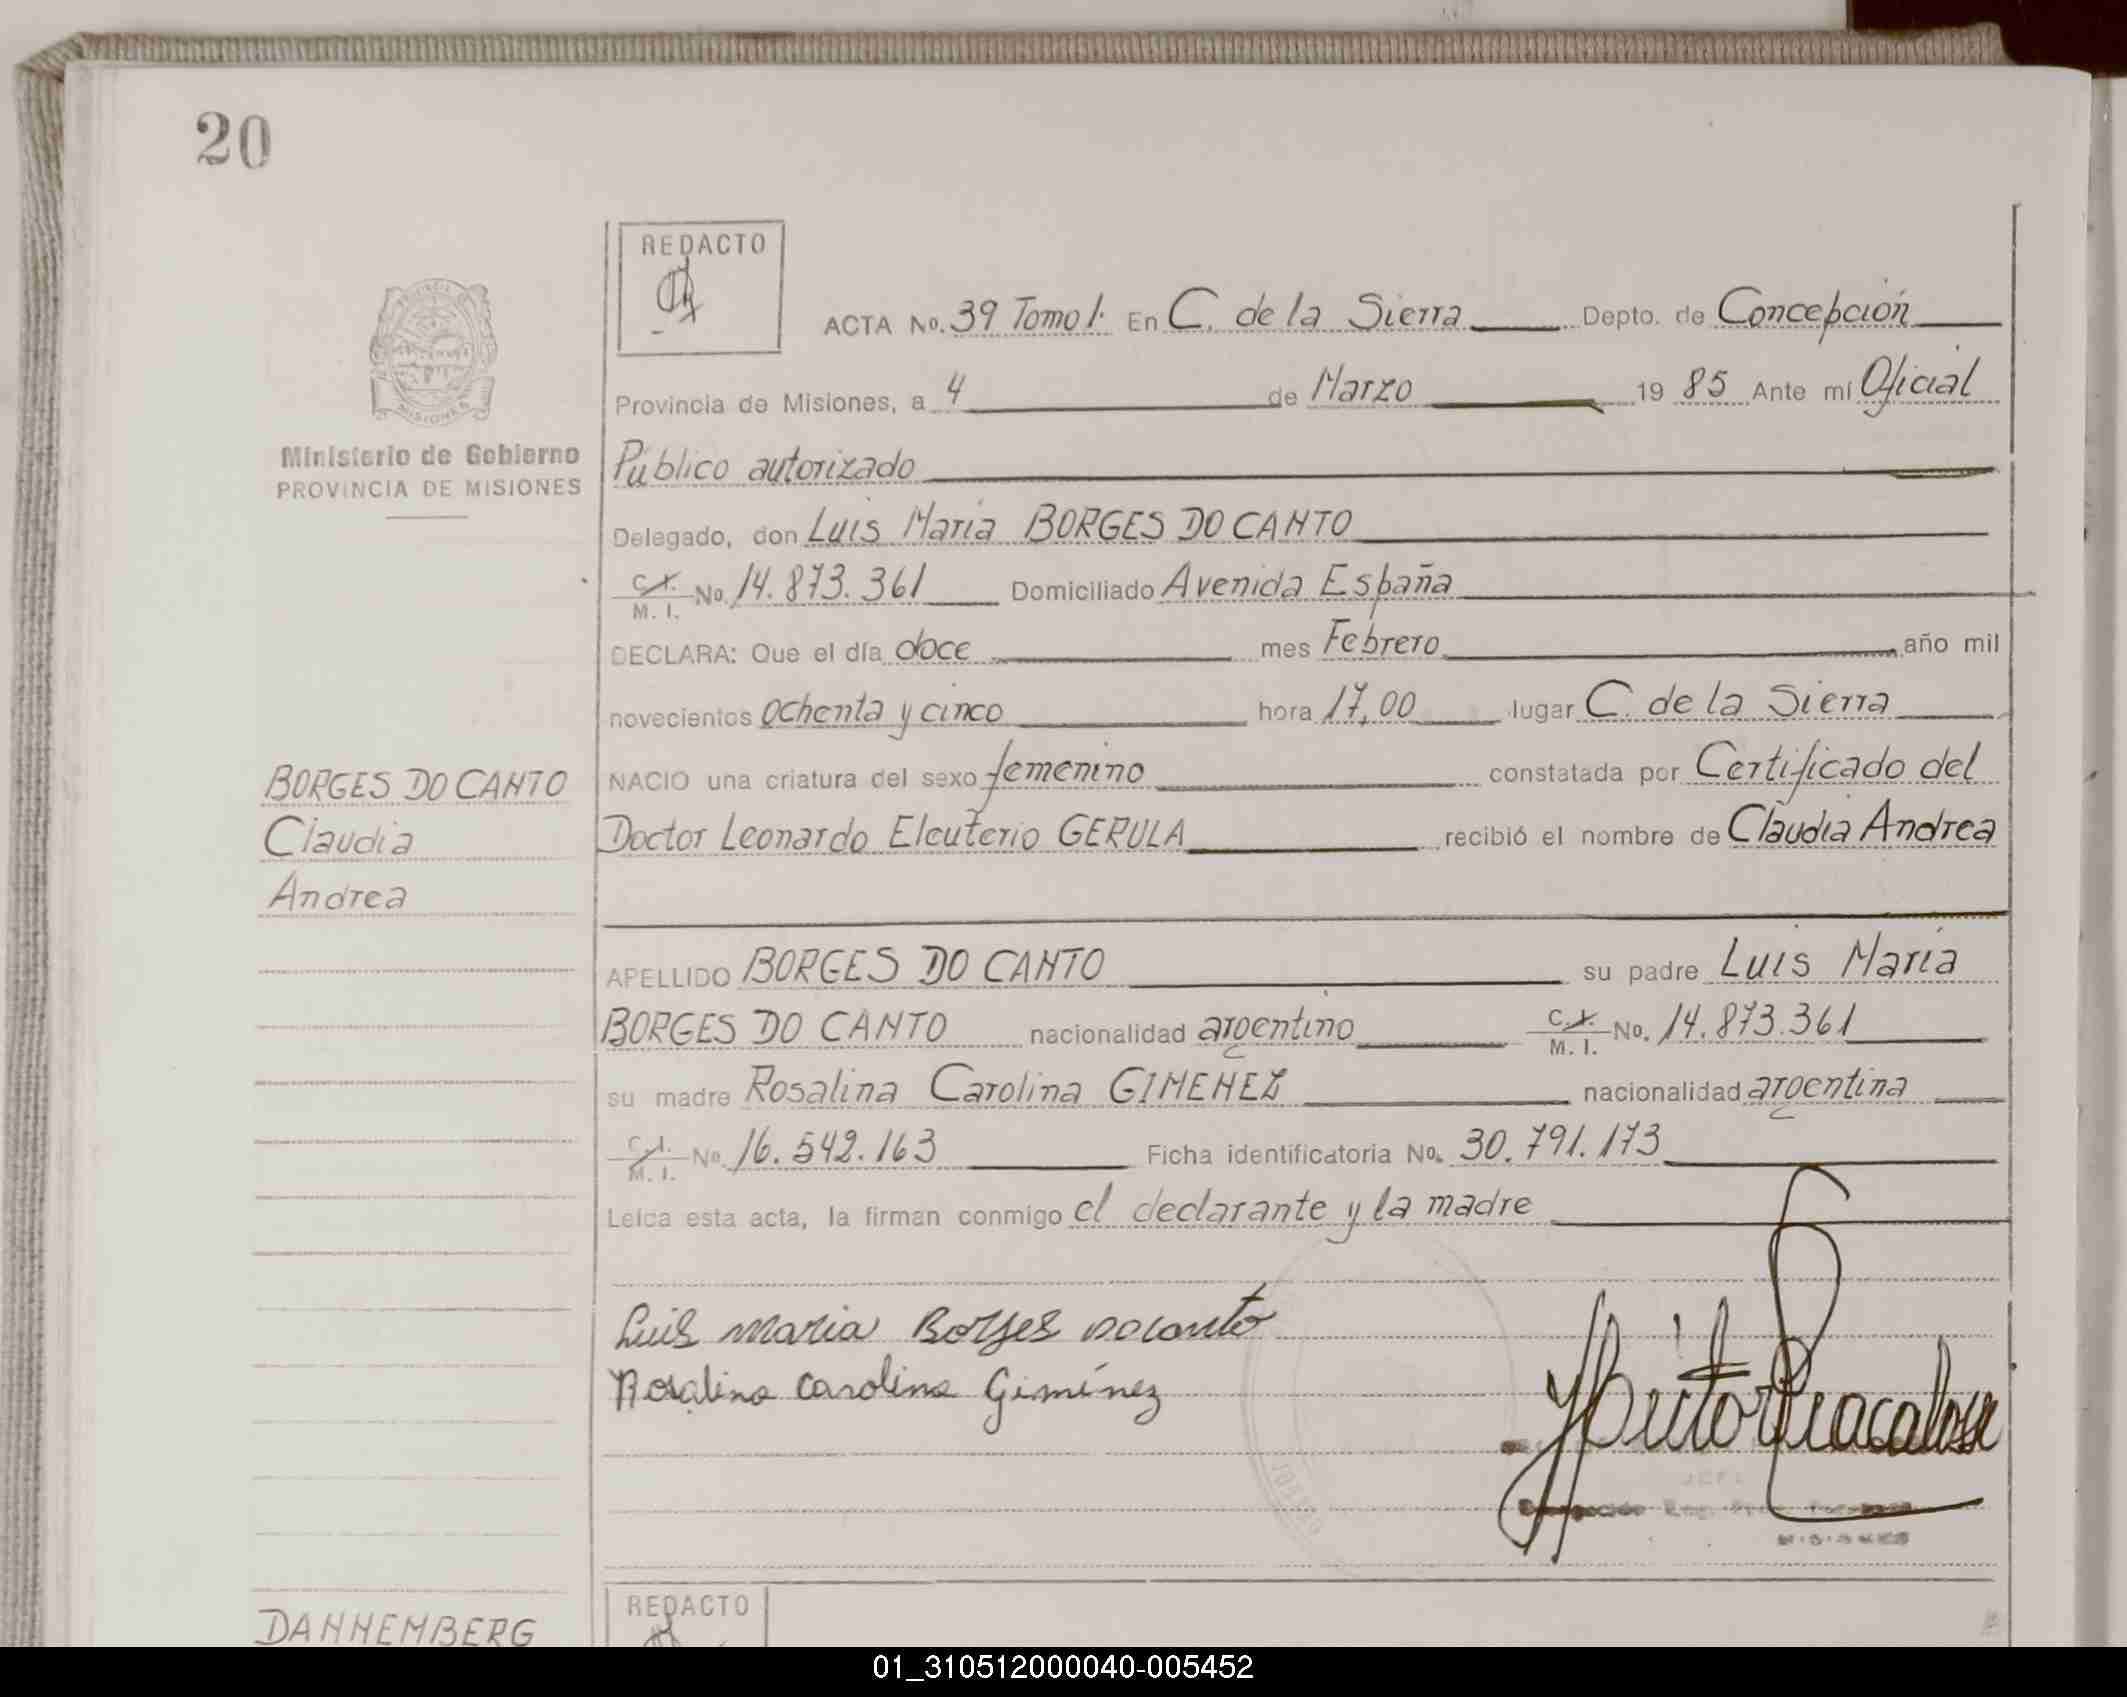 20
REDACTO
ACTA No. 39 Tomo I. En C. de la Sierra Depto. de Concepción
Provincia de Misiones, a 4 de Marzo 19 85 Ante mí Oficial
Ministerio de Gobierno
PROVINCIA DE MISIONES
Público autorizado
Delegado, don Luis María BORGES DO CANTO
C.I. M. I. No. 14.873.361 Domiciliado Avenida España
DECLARA: Que el día doce mes Febrero año mil
novecientos ochenta y cinco hora 17,00 lugar C. de la Sierra
BORGES DO CANTO
Claudia
Andrea
NACIO una criatura del sexo femenino constatada por Certificado del
Doctor Leonardo Eleuterio GERULA recibió el nombre de Claudia Andrea
APELLIDO BORGES DO CANTO su padre Luis María
BORGES DO CANTO nacionalidad argentino C.I. M. I. No. 14.873.361
su madre Rosalina Carolina GIMENEZ nacionalidad argentina
C.I. M. I. No. 16.542.163 Ficha identificatoria No. 30.791.173
Leída esta acta, la firman conmigo el declarante y la madre
Luis Maria Borges Docanto
Rosalina Carolina Giménez
MISIONES
REDACTO
DANNEMBERG
01_310512000040-005452